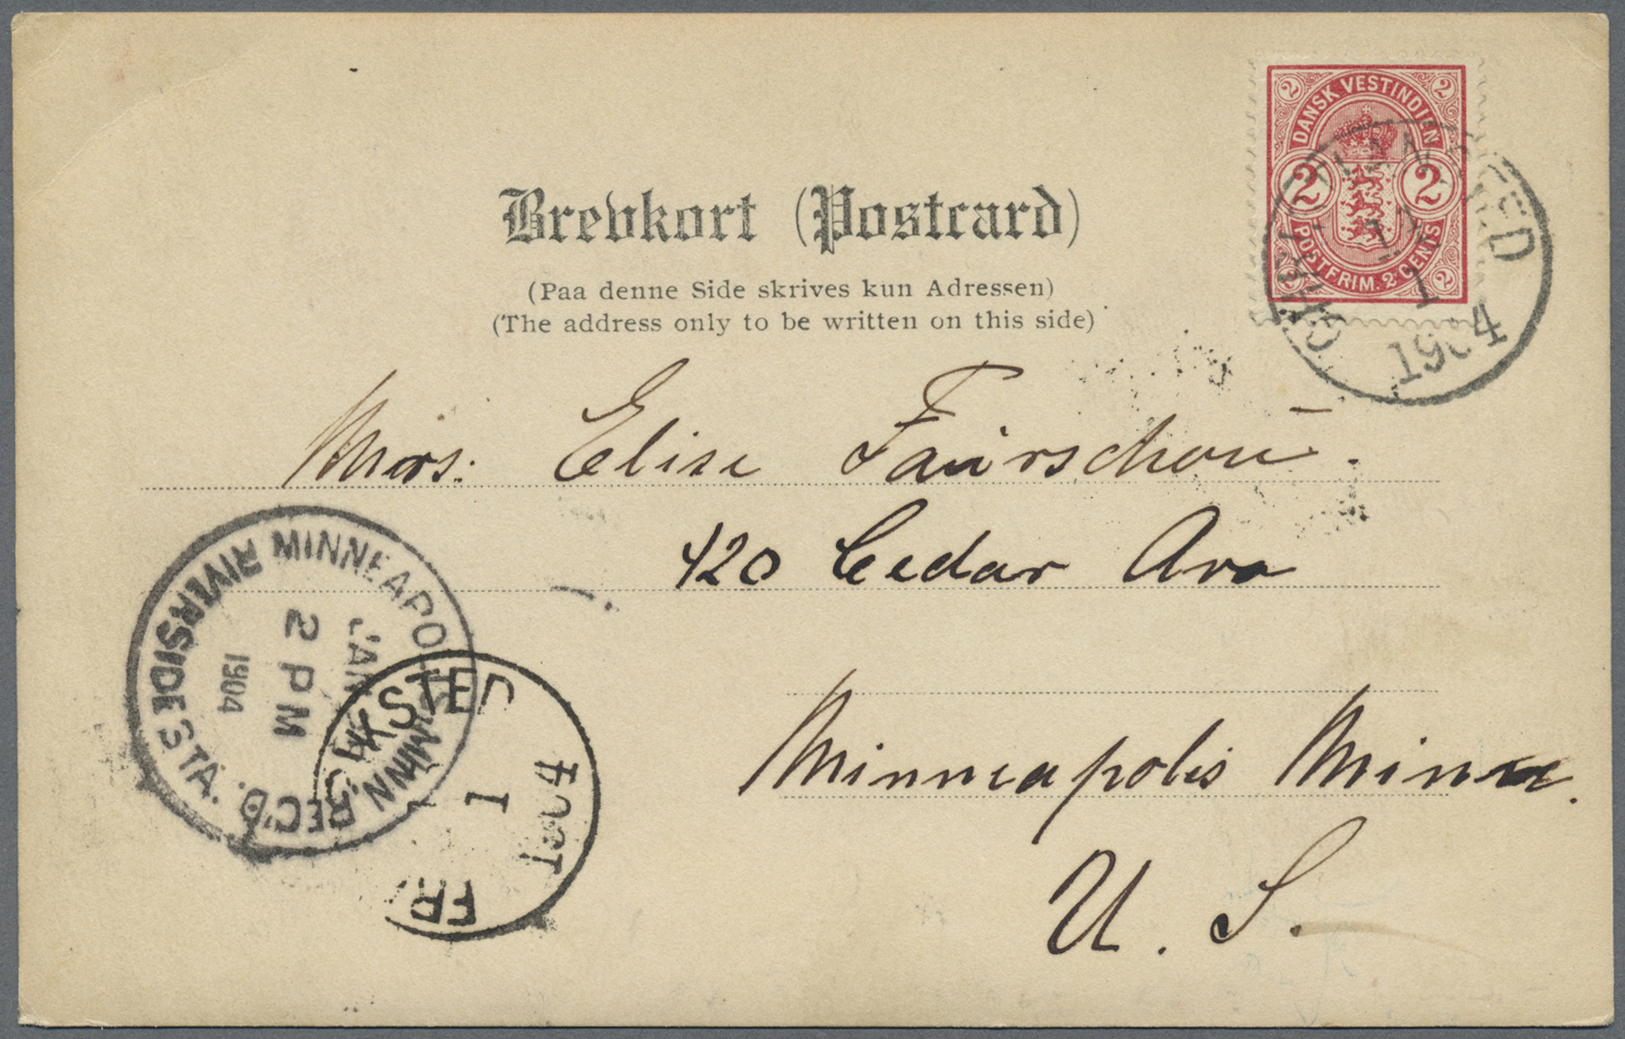 DANSK VESTINDIEN
2 2
2 2
POSTFRIM. 2 CENTS
2 2
1
1904
Brevkort (Postcard)
(Paa denne Side skrives kun Adressen)
(The address only to be written on this side)
Mrs. Elise Fairschou.
420 Cedar Ave
Minneapolis Minn.
U. S.
MINNEAPOLIS MINN. REC'D.
RIVERSIDE STA.
JAN
2 PM
1904
1
1904